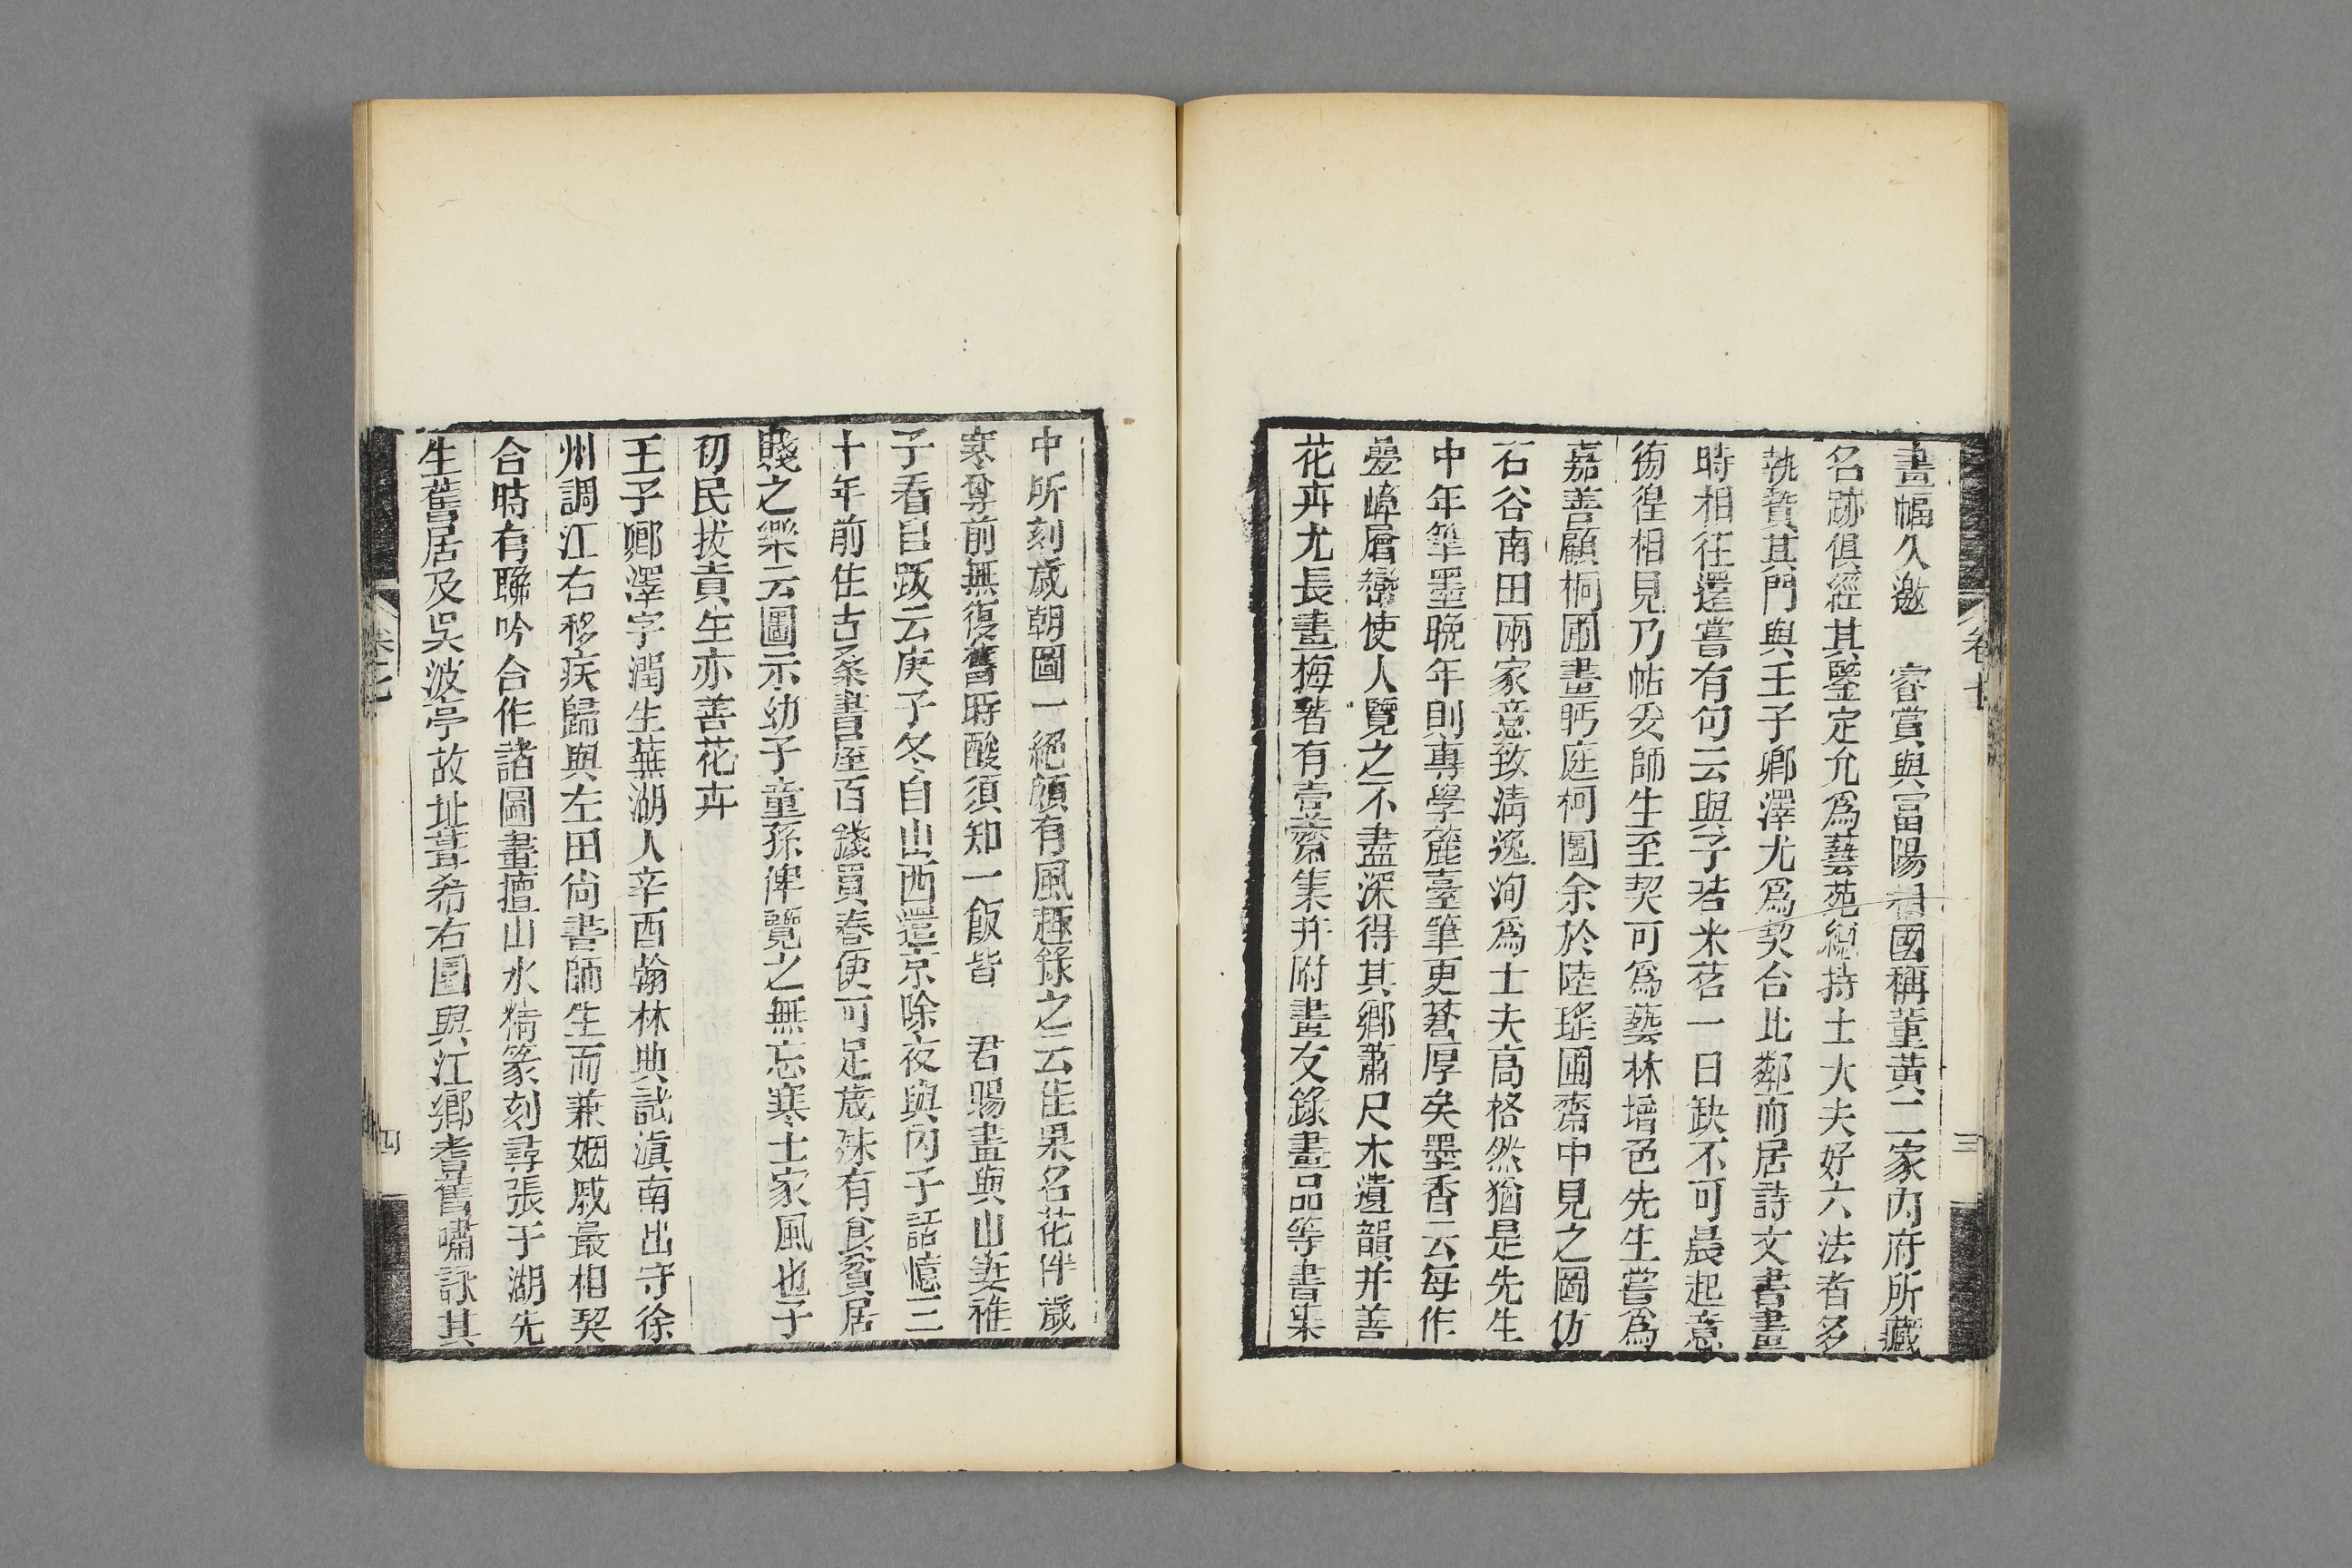 畫幅久邀　睿賞與富陽相國稱董黃二家內府所藏
名跡俱經其鑒定允爲藝苑總持士大夫好六法者多
執贄其門與王子卿澤尤爲契合比鄰而居詩文書畫
時相往還嘗有句云與子若米茗一日缺不可晨起意
徬徨相見乃帖妥師生至契可爲藝林增色先生嘗爲
嘉善顧桐圃畫眄庭柯圖余於陸瑤圃齋中見之圖仿
石谷南田兩家意致淸逸洵爲士夫高格然猶是先生
中年筆墨晚年則專學麓臺筆更蒼厚矣墨香云每作
疊嶂層巒使人覽之不盡深得其鄕蕭尺木遺韻并善
花卉尤長畫梅著有壹齋集并附畫友錄畫品等書集
卷七
三
中所刻歲朝圖一絕頗有風趣錄之云佳果名花伴歲
寒尊前無復舊時酸須知一飯皆　君賜畫與山妻稚
子看自跋云庚子冬自山西還京除夜與內子話憶三
十年前住古桑書屋百錢買春便可足歲殊有貧居
賤之樂云圖示幼子童孫俾覽之無忘寒士家風也子
初民拔貢生亦善花卉
王子卿澤字潤生蕪湖人辛酉翰林典試滇南出守徐
州調江右移疾歸與左田尙書師生而兼姻戚最相契
合時有聯吟合作諸圖畫擅山水精篆刻尋張于湖先
生舊居及吳波亭故址葺希右園與江鄕耆舊嘯詠其
卷七
四